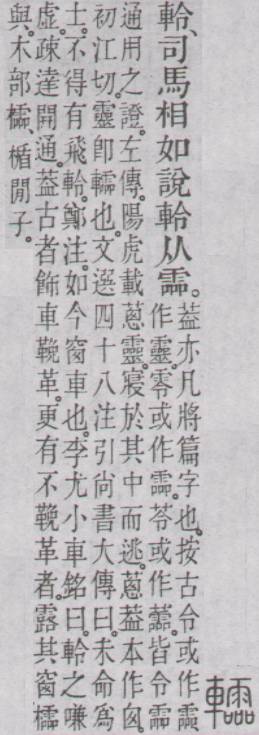 𨏖
軨、司馬相如說軨从霝。
蓋亦凡將篇字也。按古令或作霝
作靈。零或作霝。苓或作蘦。皆令霝
通用之證。左傳。陽虎載蔥靈。寢於其中而逃。蔥蓋本作囱
初江切。靈卽𨏖也。文選四十八注引尙書大傳曰。未命爲
士。不得有飛軨。鄭注。如今窗車也。李尤小車銘曰。軨之嗛
虛。疎達開通。蓋古者飾車鞔革。更有不鞔革者。露其窗櫺
與。木部櫺、楯閒子。